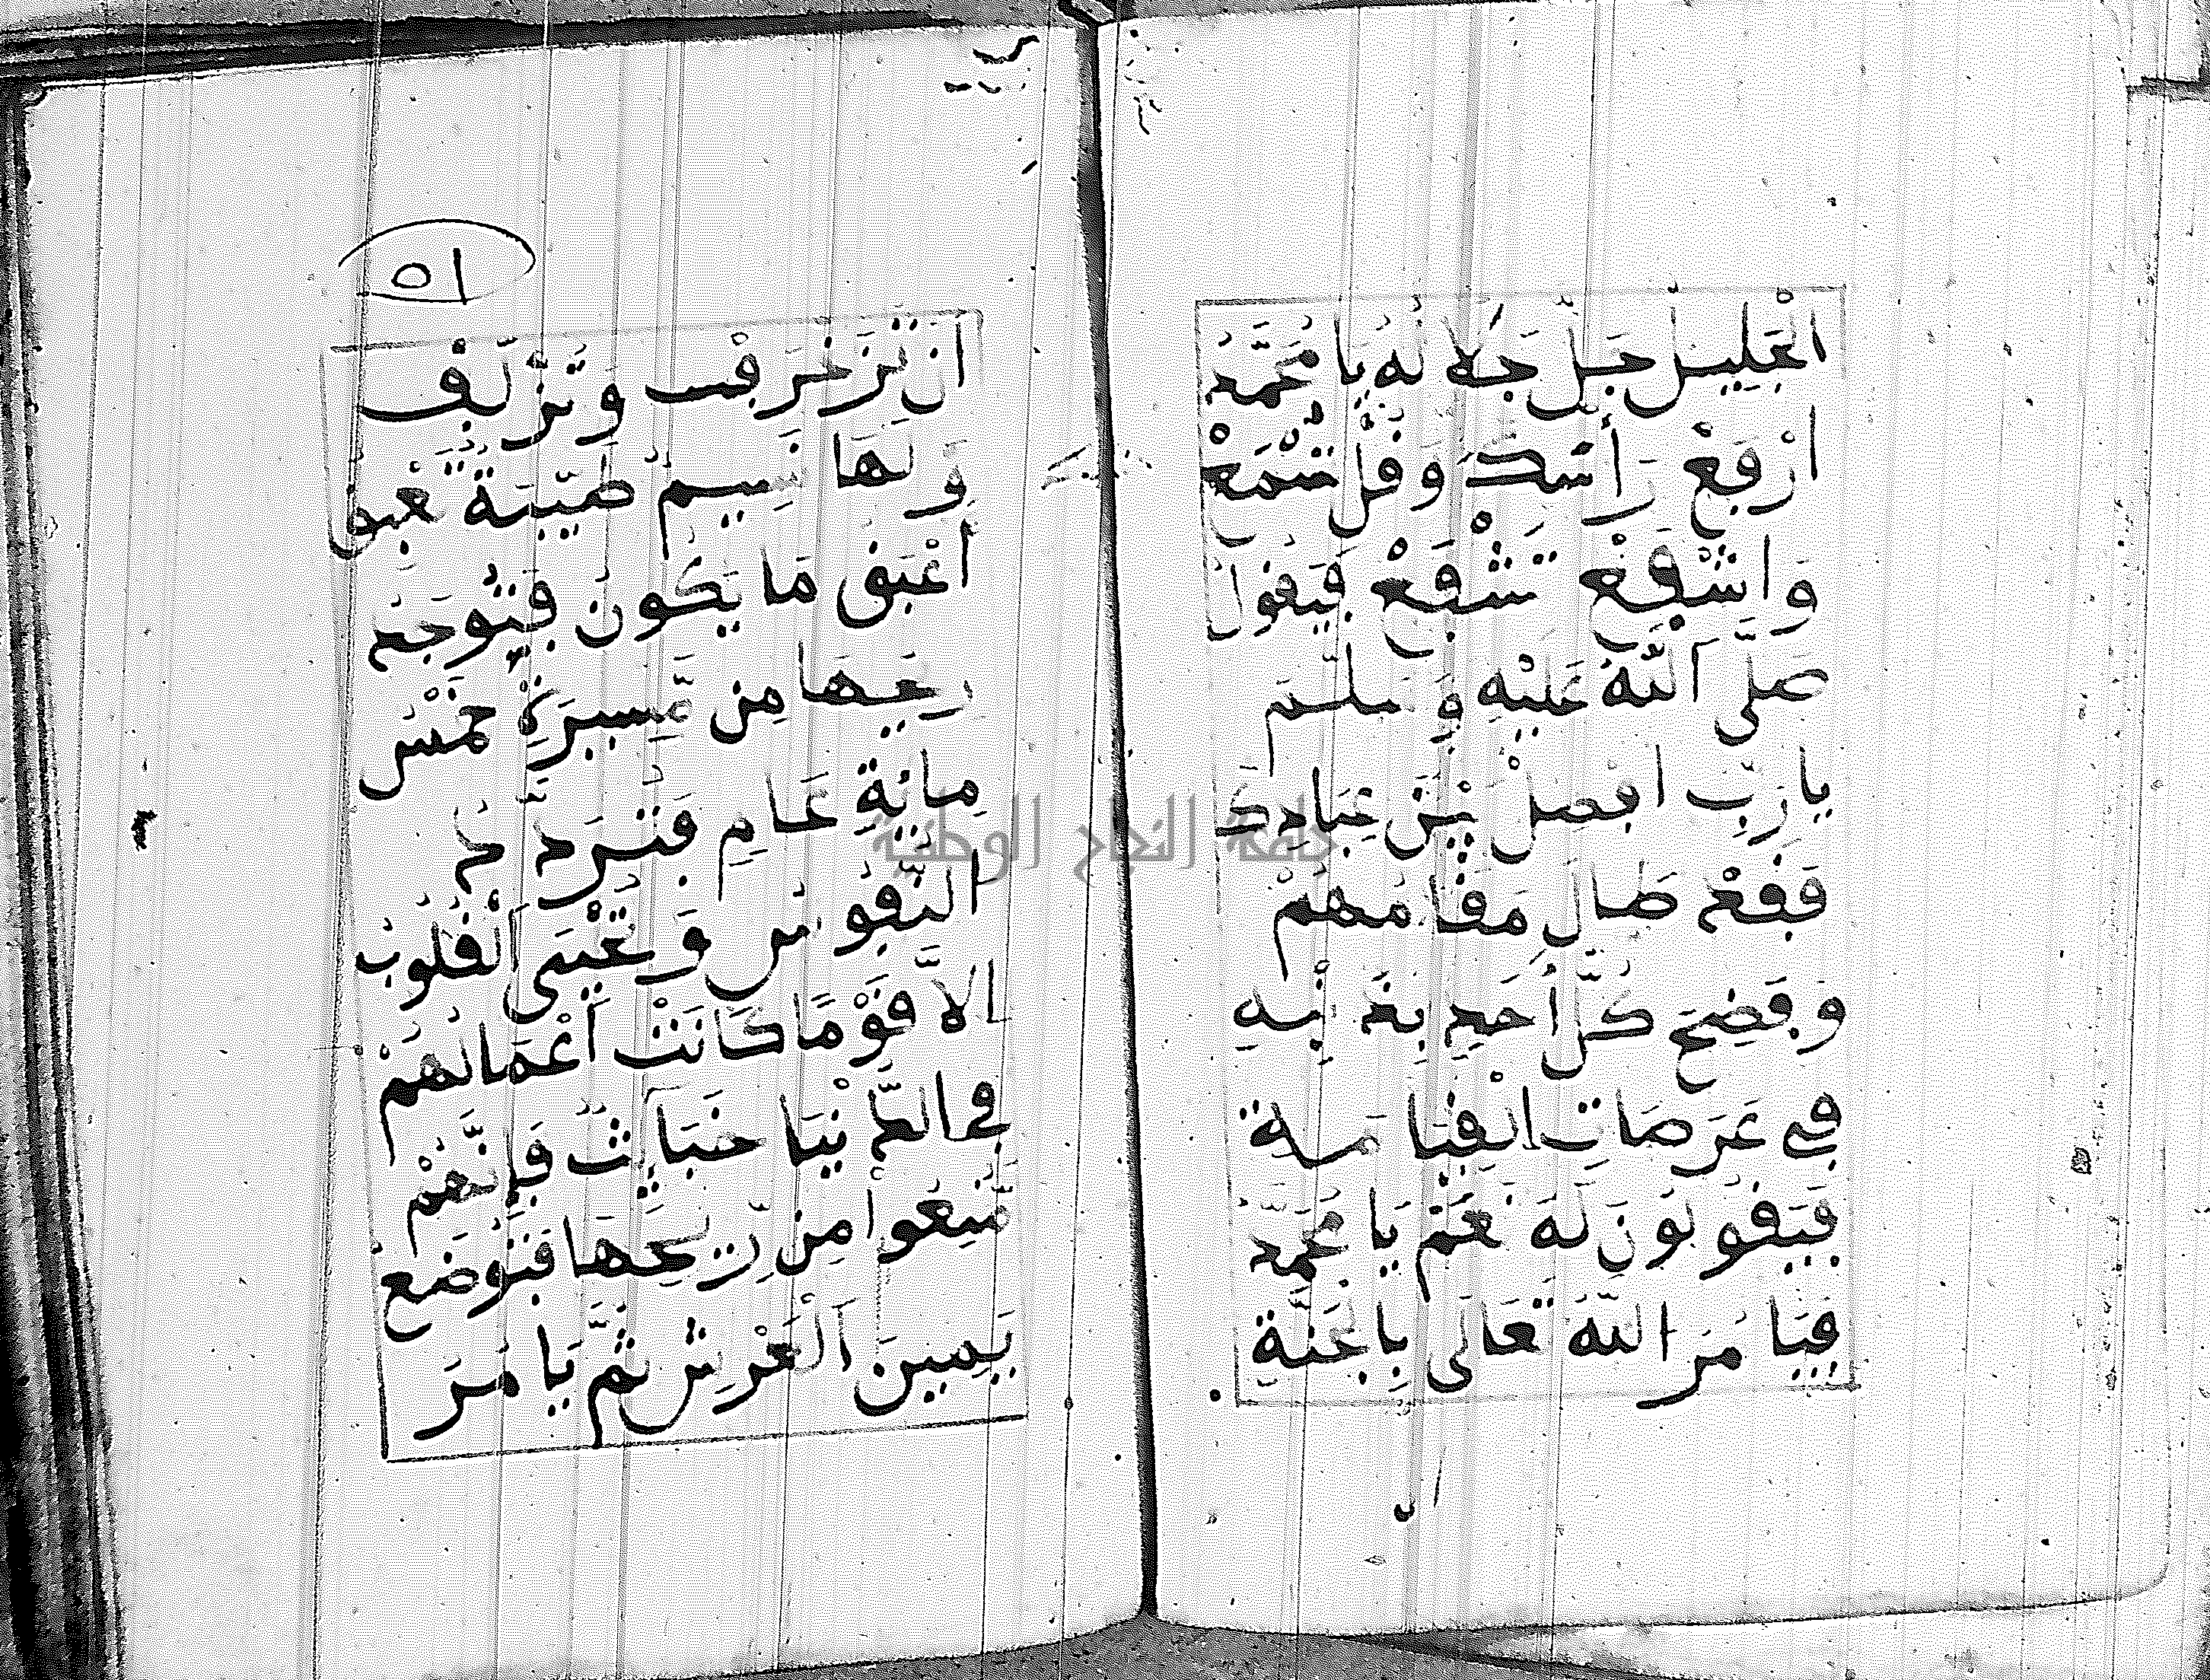 الْجَلِيلُ جَلَّ جَلَالُهُ يَا مُحَمَّد
ارْفَعْ رَأْسَكَ وَقُلْ تُسْمَعْ
وَاشْفَعْ تُشَفَّعْ فَيَقُولُ
صَلَّى اللَّهُ عَلَيْهِ وَسَلَّمَ
يَا رَبِّ افْصِلْ بَيْنَ عِبَادِكَ
فَقَدْ طَالَ مَقَامُهُمْ
وَفُضِحَ كُلُّ أَحَدٍ بِذَنْبِهِ
فِي عَرَصَاتِ الْقِيَامَةِ
فَيَقُولُونَ لَهُ نَعَمْ يَا مُحَمَّد
فَيَأْمُرُ اللَّهُ تَعَالَى بِالْجَنَّةِ
٥١
أَنْ تُزَخْرَفَ وَتُزْلَفَ
وَلَهَا نَسِيمٌ طَيِّبَةٌ تَعْبَقُ
أَعْبَقَ مَا يَكُونُ فَتُوجَدُ
رِيحُهَا مِنْ مَّسِيرَةِ خَمْسِ
مِائَةِ عَامٍ فَتَبْرُدُ
النُّفُوسُ وَتَحْيَى الْقُلُوبُ
إِلَّا قَوْمًا كَانَتْ أَعْمَالُهُمْ
فِي الدُّنْيَا خَبَائِثَ فَإِنَّهُمْ
مُّنِعُوا مِن رِّيحِهَا فَتُوضَعُ
يَمِينَ الْعَرْشِ ثُمَّ يَأْمُرُ
جامعة النجاح الوطنية